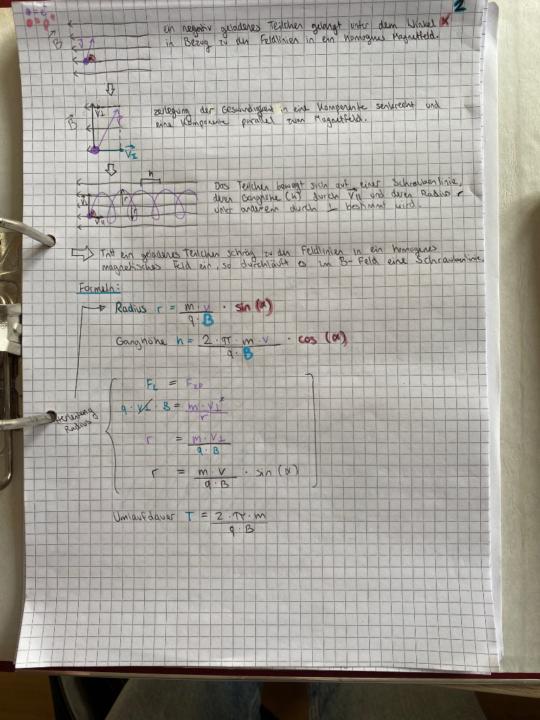 2
ein negativ geladenes Teilchen gelangt unter dem Winkel α
in Bezug zu den Feldlinien in ein homogenes Magnetfeld.
B
Zerlegung der Geschwindigkeit in eine Komponente senkrecht und
eine Komponente parallel zum Magnetfeld.
B
V⊥
h
Das Teilchen bewegt sich auf einer Schraubenlinie,
deren Ganghöhe (h) durch V|| und deren Radius r
unter anderem durch ⊥ bestimmt wird.
⇒ Tritt ein geladenes Teilchen schräg zu den Feldlinien in ein homogenes
magnetisches Feld ein, so durchläuft es im B-Feld eine Schraubenlinie.
Formeln:
Radius r = m · v / q · B · sin (α)
Ganghöhe h = 2 · π · m · v / q · B · cos (α)
Herleitung
Radius
F_L = F_ZP
q · V⊥ · B = m · V⊥² / r
r = m · V⊥ / q · B
r = m · v / q · B · sin (α)
Umlaufdauer T = 2 · π · m / q · B